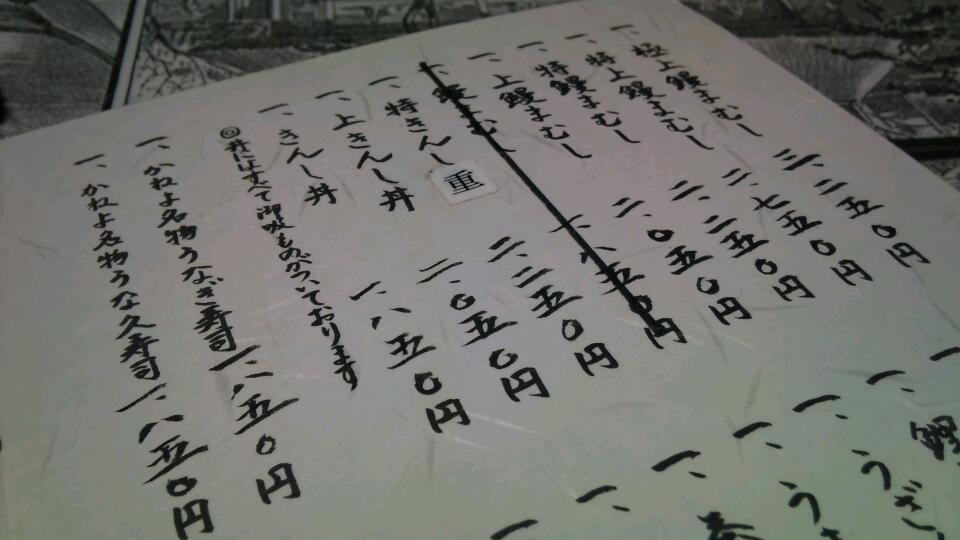 一、極上鰻まむし 三、二五〇円
一、特上鰻まむし 二、七五〇円
一、特鰻まむし 二、二五〇円
一、上鰻まむし 二、〇五〇円
まむし 五〇円
一、特きんし重 二、二五〇円
一、上きんし丼 二、〇五〇円
一、きんし丼 一、八五〇円
◎丼にはすべて御吸ものがついております
一、かねよ名物うなぎ寿司 一、八五〇円
一、かねよ名物うな久寿司 一、八五〇円
一、
一、
一、
一、
一、
一、